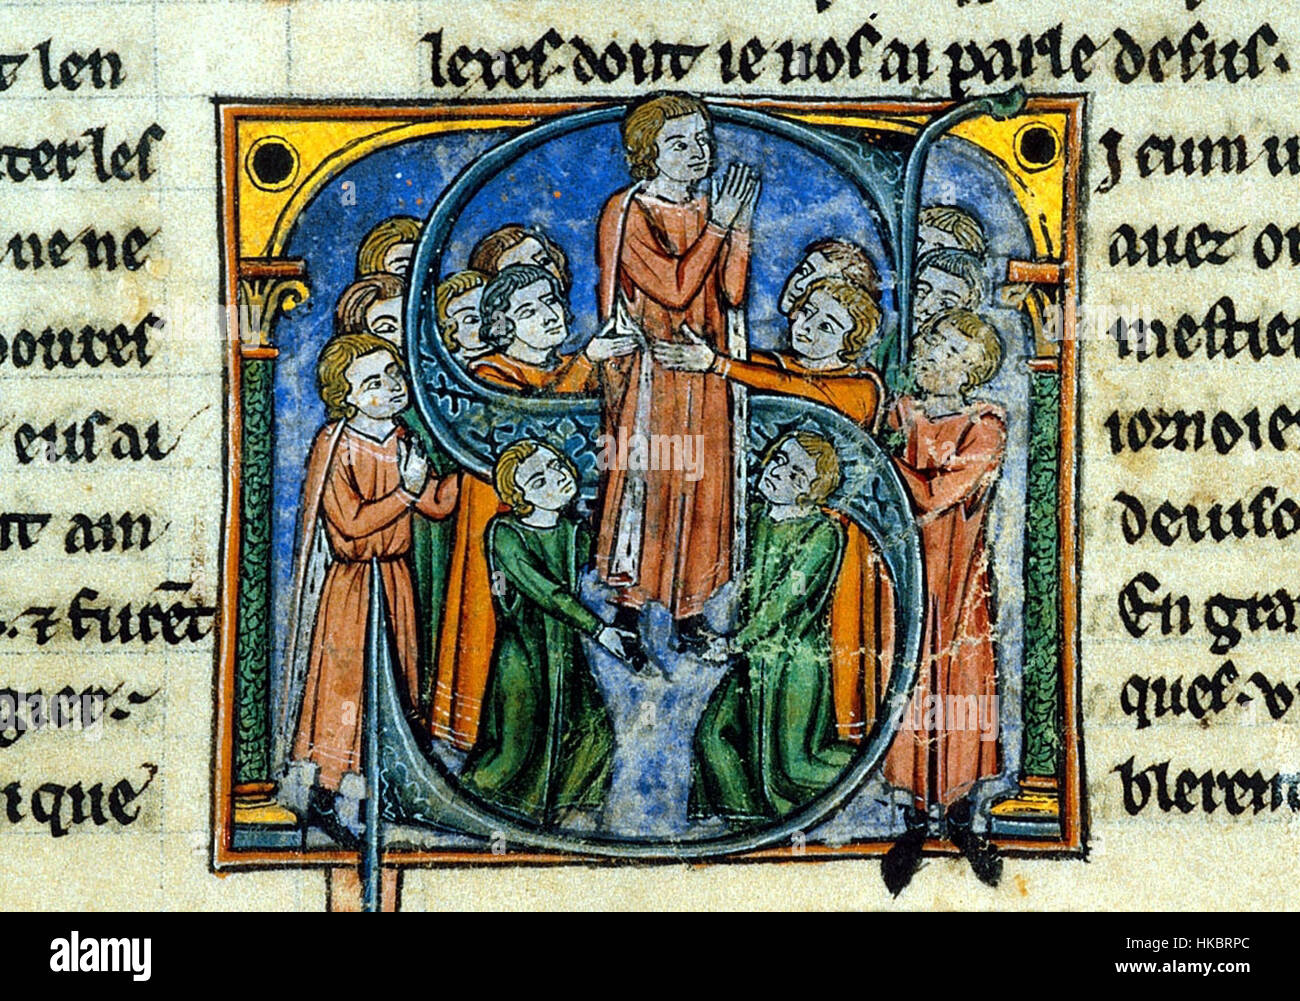 lexes dont ie uos ai parle desus.
t len
ter les
ue ne
oures
eus ai
nt ain
. ⁊ furēt
gier.
ique
J cum u
auez o
mestie
iornoie
deuiso
En gra
ques. v
bleren
alamy
Image ID: HKBRPC
www.alamy.com